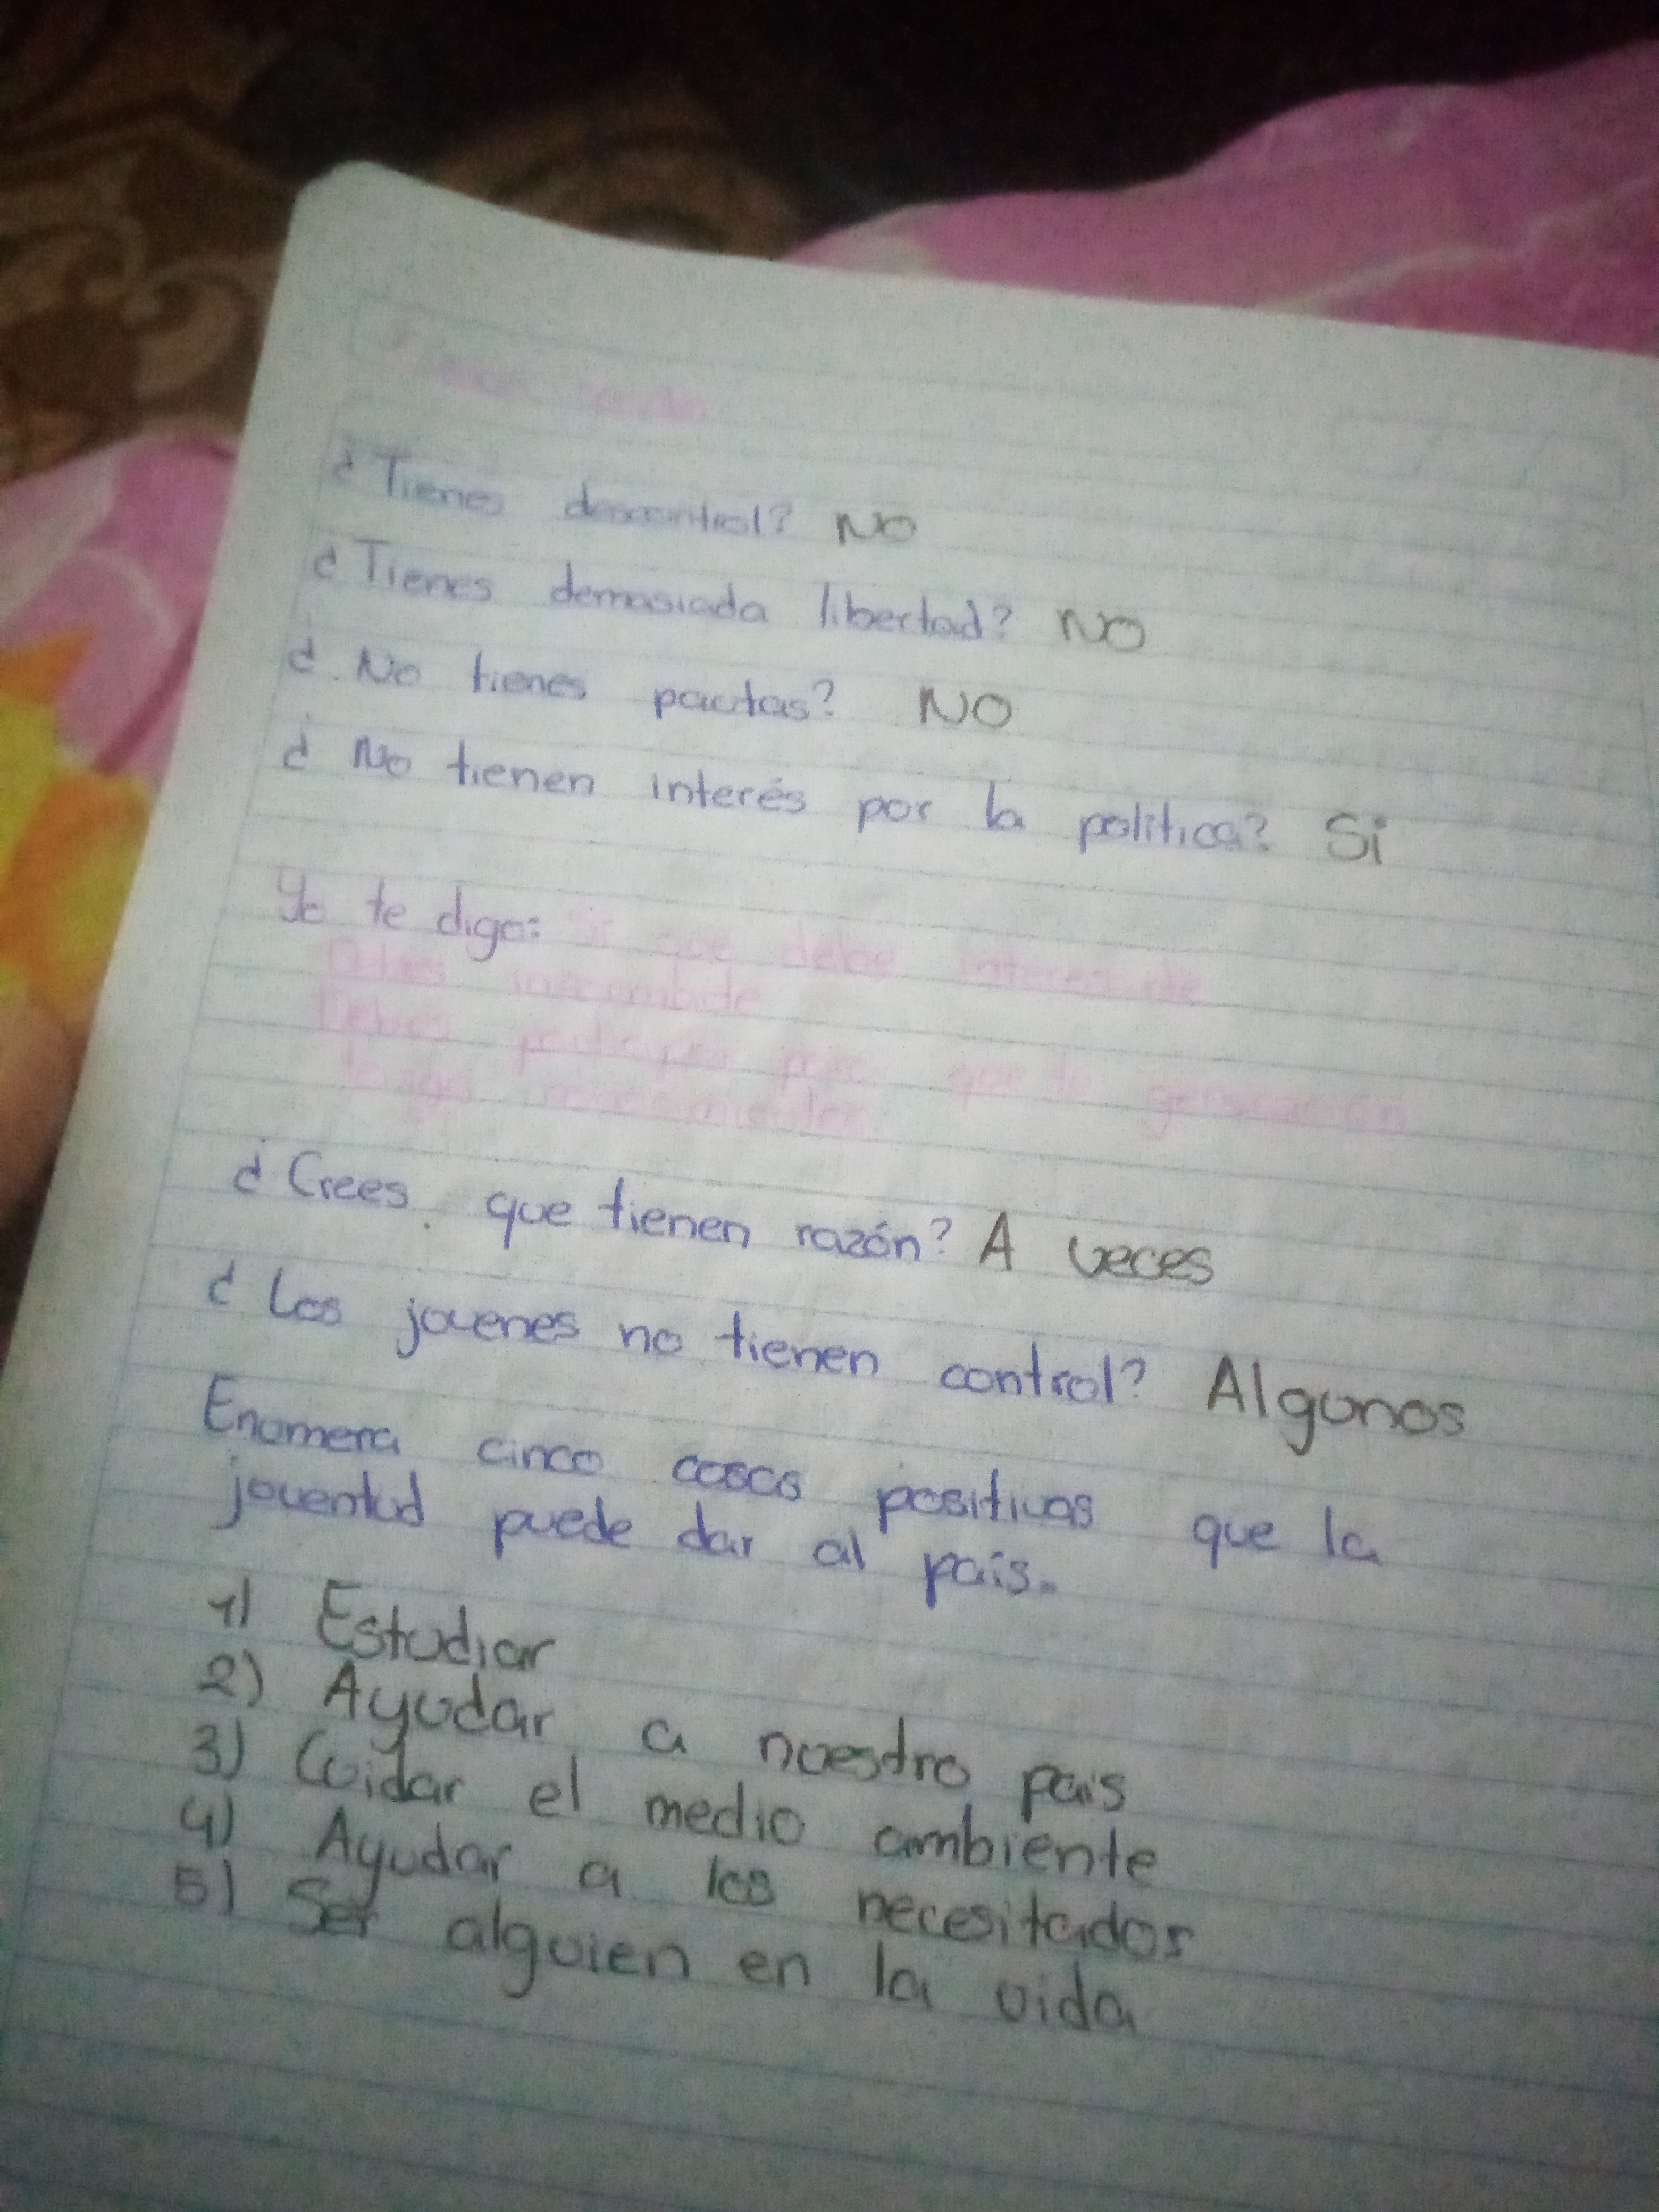 ¿Tienes descontrol? NO
¿Tienes demasiada libertad? NO
¿No tienes pautas? NO
¿No tienen interés por la política? Si
Yo te digo: Si que debe interesarte
Debes
Debes participar para que tu generación
tenga
¿Crees que tienen razón? A veces
¿Los jovenes no tienen control? Algunos
Enumera cinco cosas positivas que la
joventud puede dar al país.
1) Estudiar
2) Ayudar a nuestro pais
3) Cuidar el medio ambiente
4) Ayudar a los necesitados
5) Ser alguien en la vida